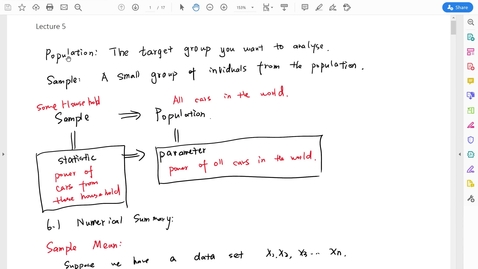 Lecture 5
Population: The target group you want to analyse.
Sample: A small group of inviduals from the population.
Some Household
All cars in the world.
Sample ⇒ Population.
statistic ⇒ parameter
power of cars from these household
power of all cars in the world.
6.1 Numerical Summary:
Sample Mean:
Suppose we have a data set x₁, x₂, x₃ ... xₙ.